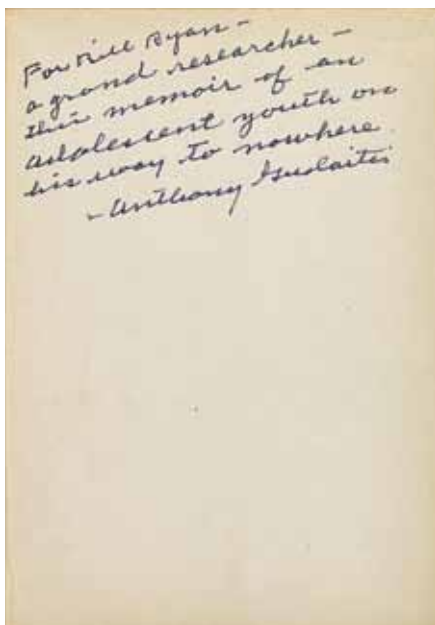 For Bill Ryan -
a grand researcher -
this memoir of an
adolescent youth on
his way to nowhere.
- Anthony Gudaitis